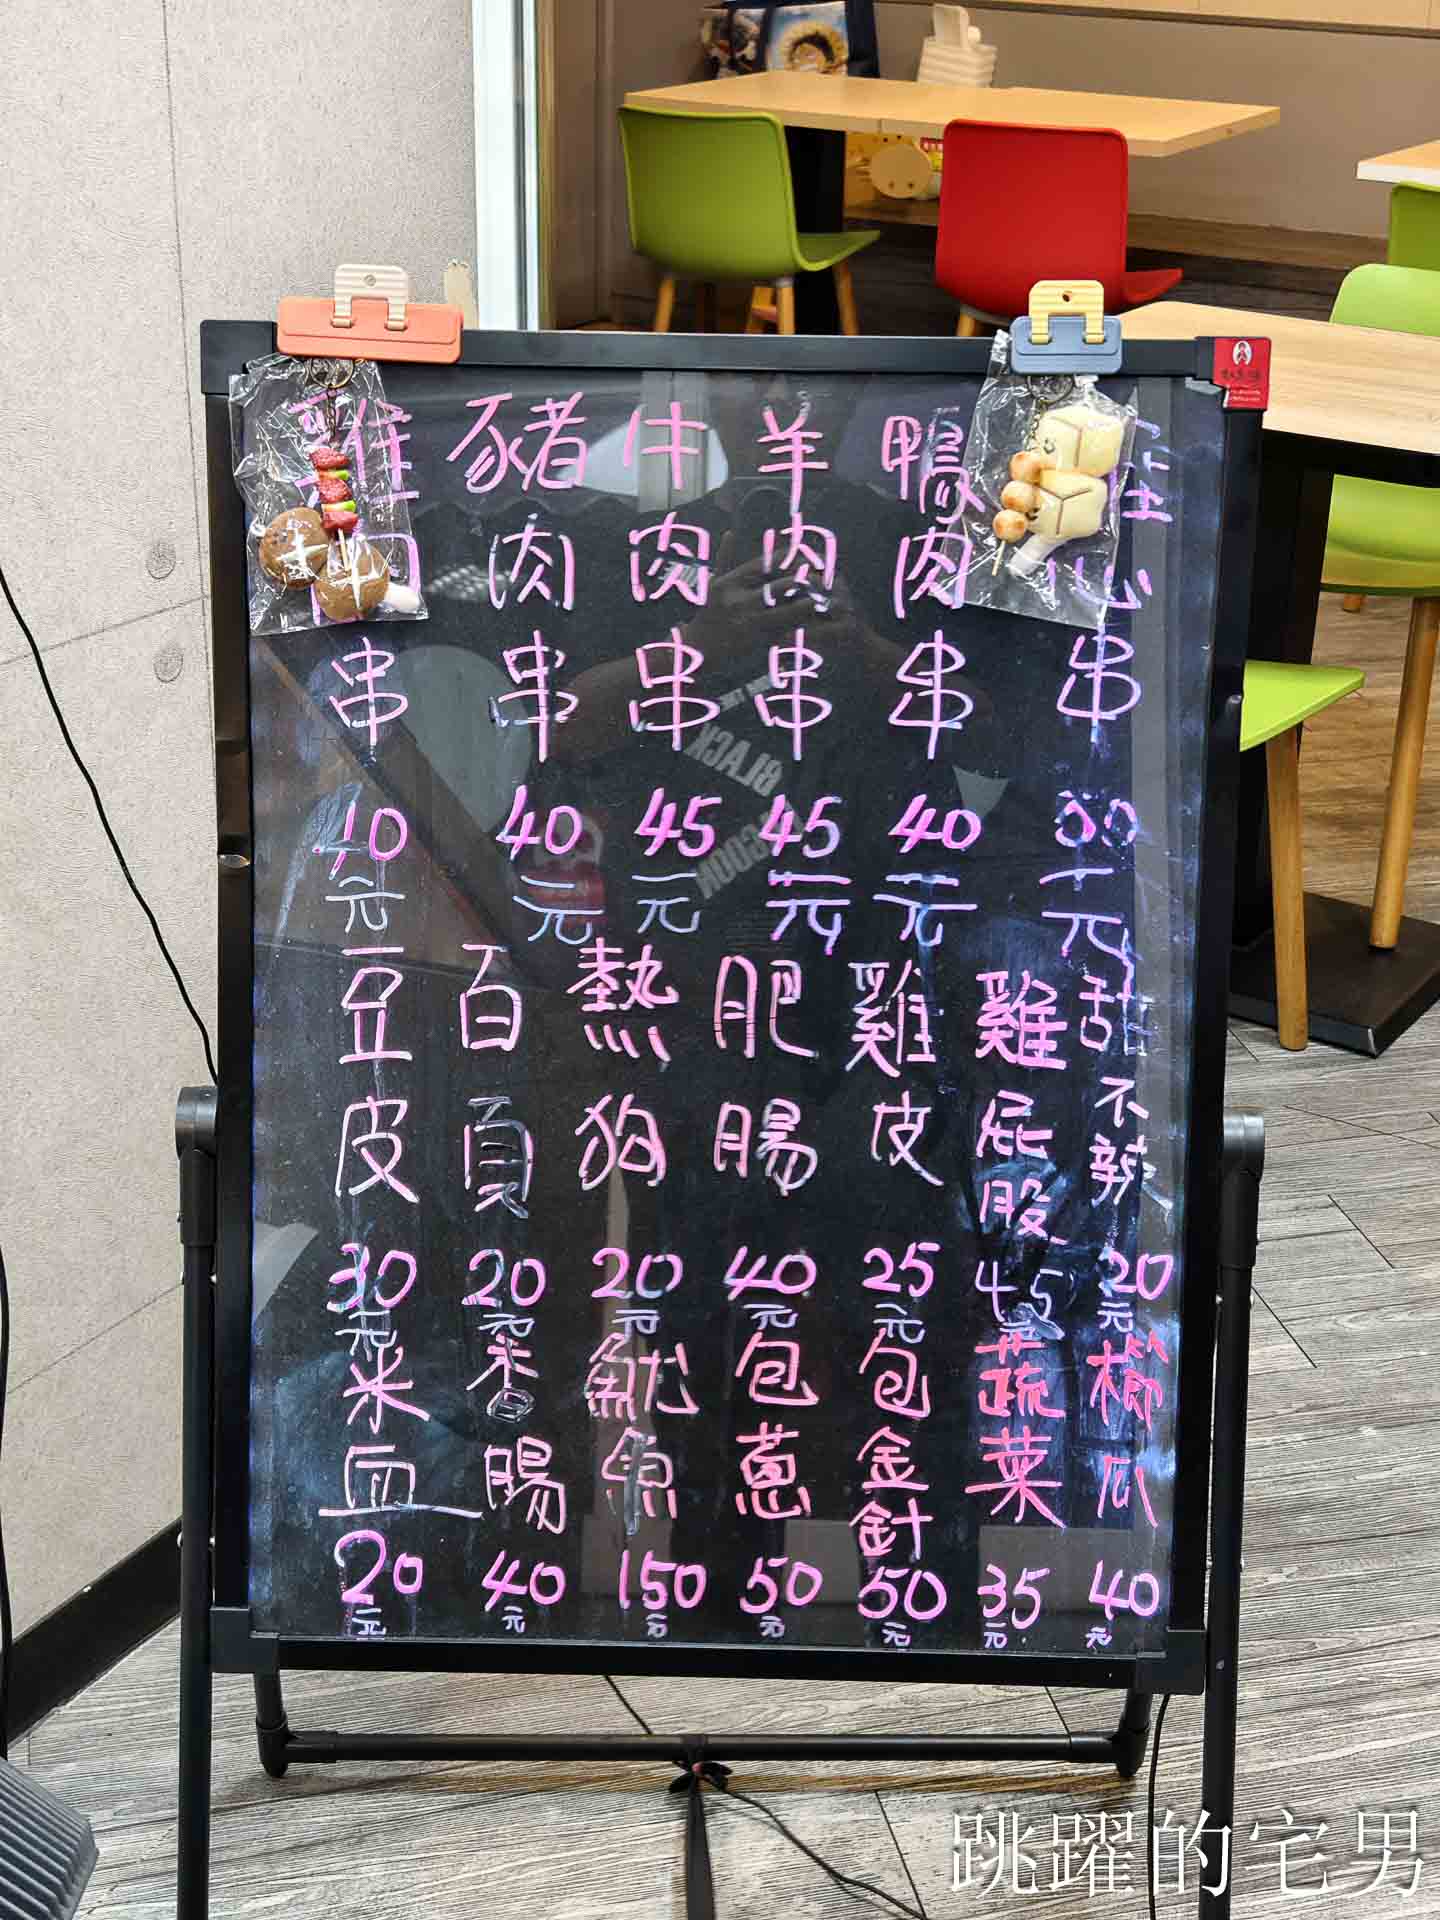 雞肉串 40元
豬肉串 40元
牛肉串 45元
羊肉串 45元
鴨肉串 40元
心串 元
豆皮 30元
百頁 20元
熱狗 20元
肥腸 40元
雞皮 25元
雞屁股 45元
甜不辣 20元
米血 20元
香腸 40元
魷魚 150元
包蔥 50元
包金針 50元
蔬菜 35元
櫛瓜 40元
BLACK
跳躍的宅男